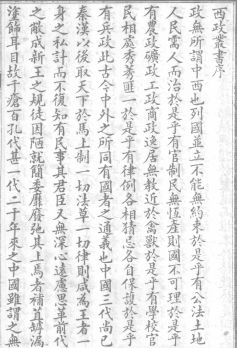 西政叢書序
政無所謂中西也列國並立不能無約束於是乎有公法土地
人民需人而治於是乎有官制民無恆產則國不可理於是乎
有農政礦政工政商政逸居無教近於禽獸於是乎有學校官
民相處秀莠匪一於是乎有律例各相猜忌各自保護於是乎
有兵政此古今中外之所同有國者之通義也中國三代尚已
秦漢以後取天下於馬上制一切法草一切律則咸為王者一
身之私計而不復知有民事其君臣又無深心遠慮思革前代
之敝成新王之規徒因陋就簡委靡廢弛其上焉者補苴罅漏
塗飾耳目故千瘡百孔代甚一代二十年來之中國雖謂之無